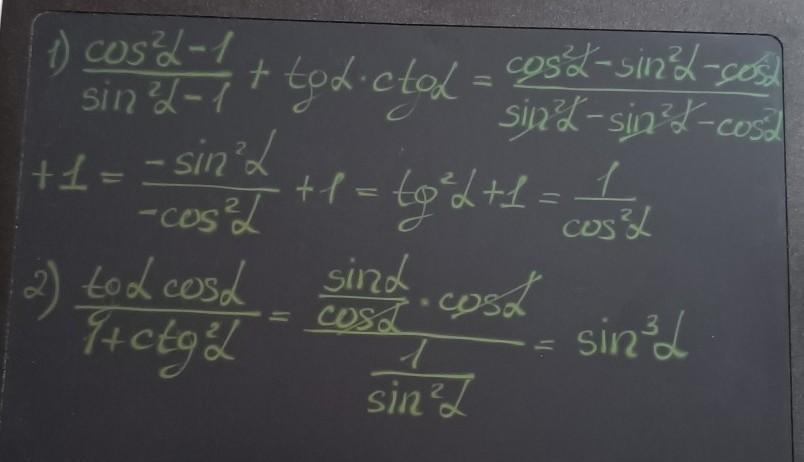 1) (cos²α-1)/(sin²α-1) + tgα·ctgα = (cos²α-sin²α-cos²α)/(sin²α-sin²α-cos²α)
+1 = (-sin²α)/(-cos²α) +1 = tg²α+1 = 1/cos²α
2) (tgα cosα)/(1+ctg²α) = (sinα/cosα · cosα)/(1/sin²α) = sin³α